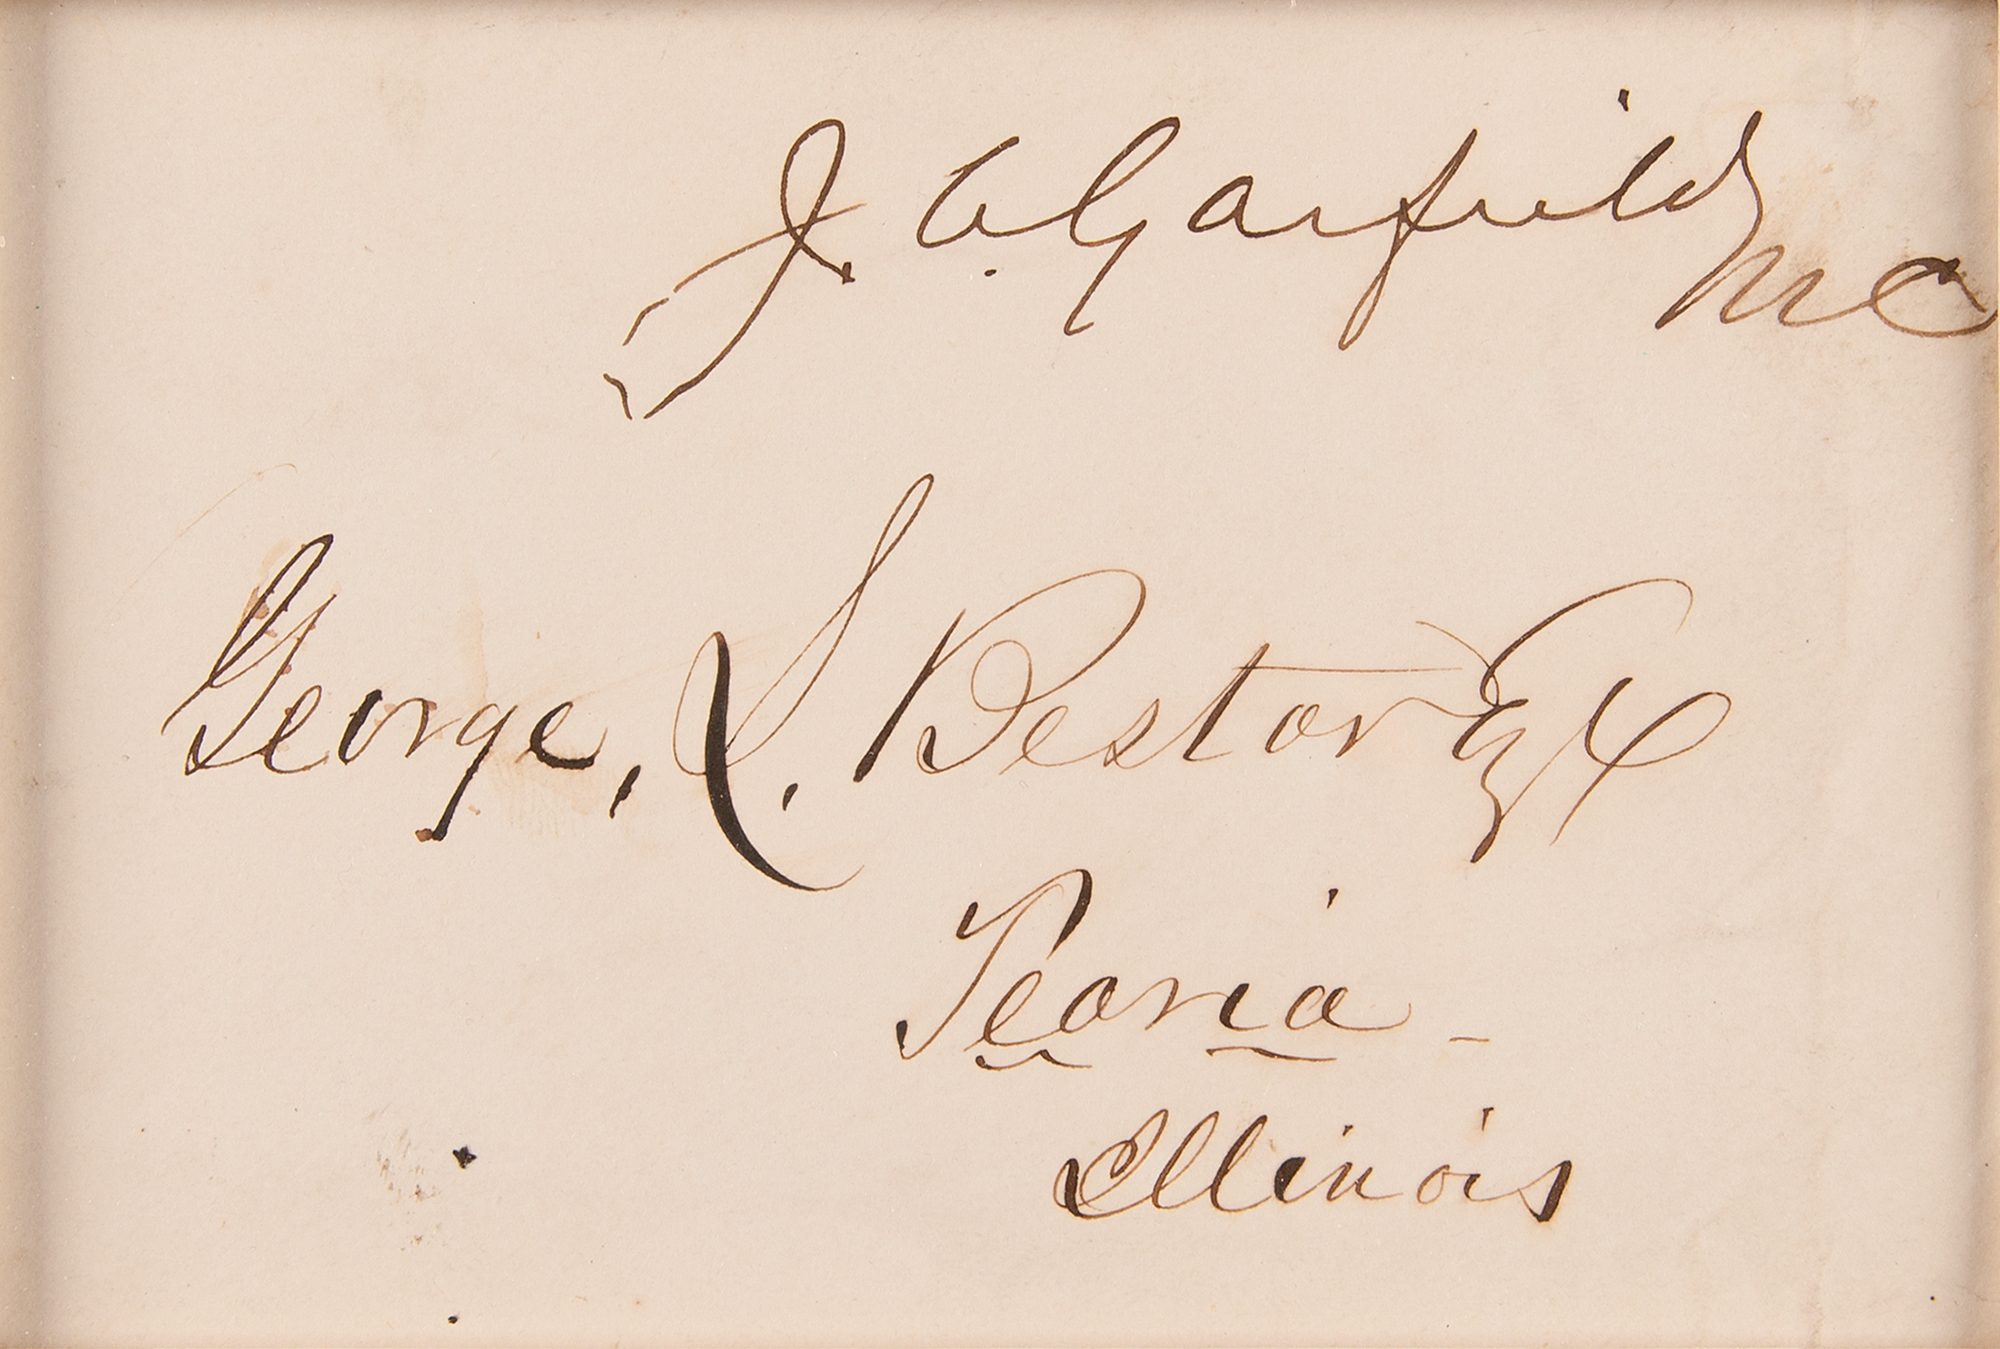 J. A. Garfield
MC
George, L. Bestor Esq
Peoria -
Illinois